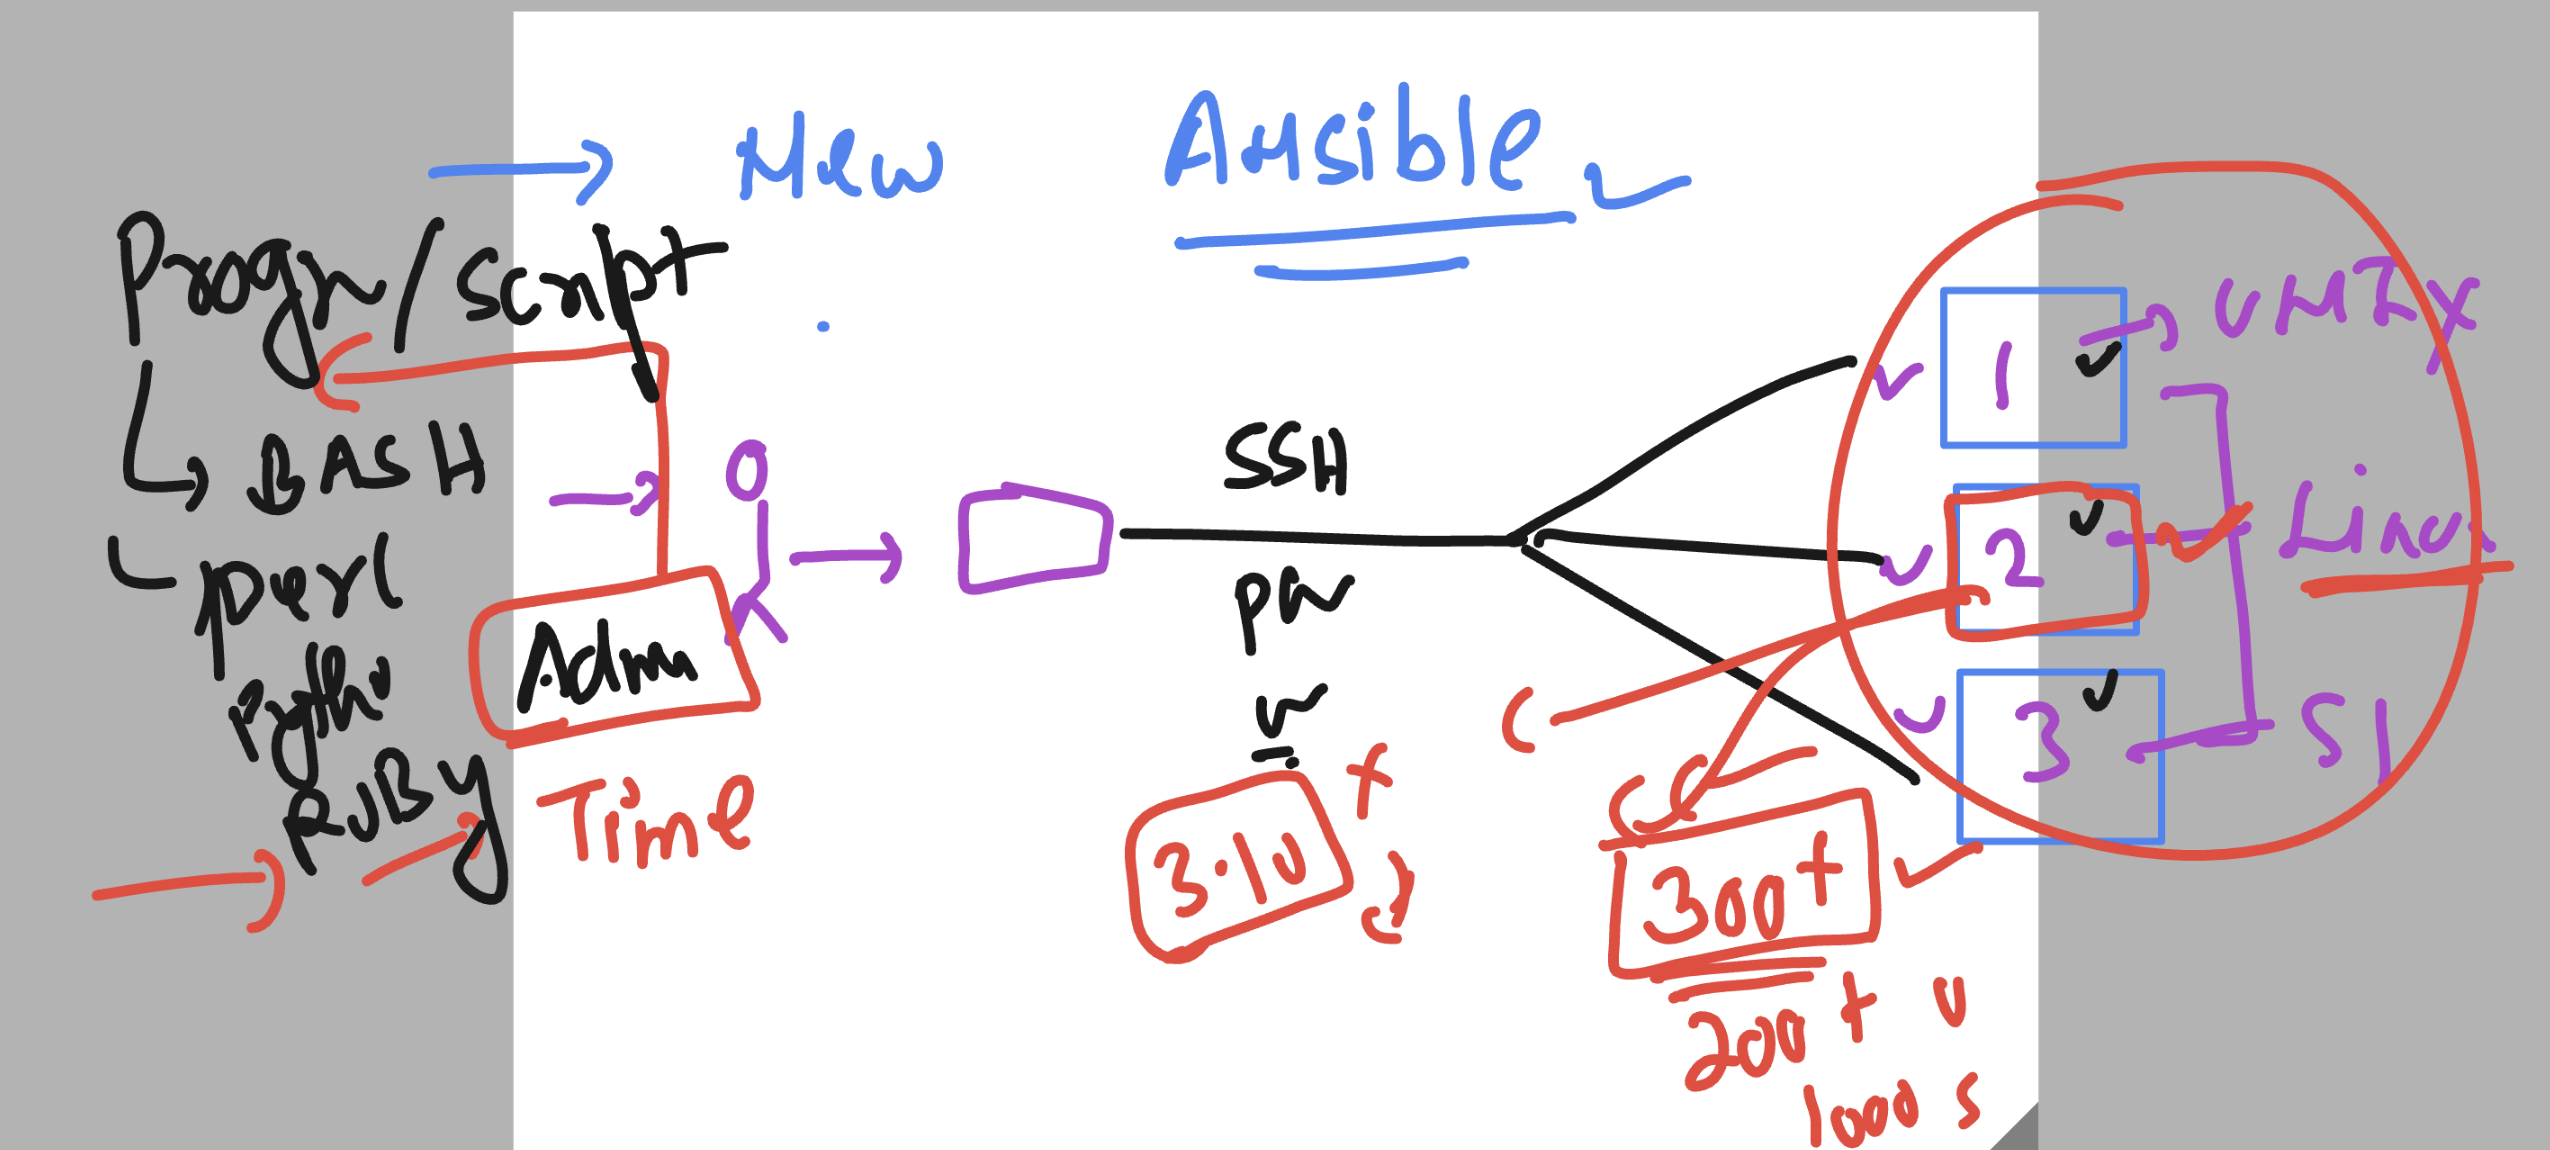 New Ansible
Progr/Script
BASH
perl
RUBY
Adm
Time
SSH
3.10
+
1
2
3
UNIX
Linux
Sl
300+
200+ U
1000 s